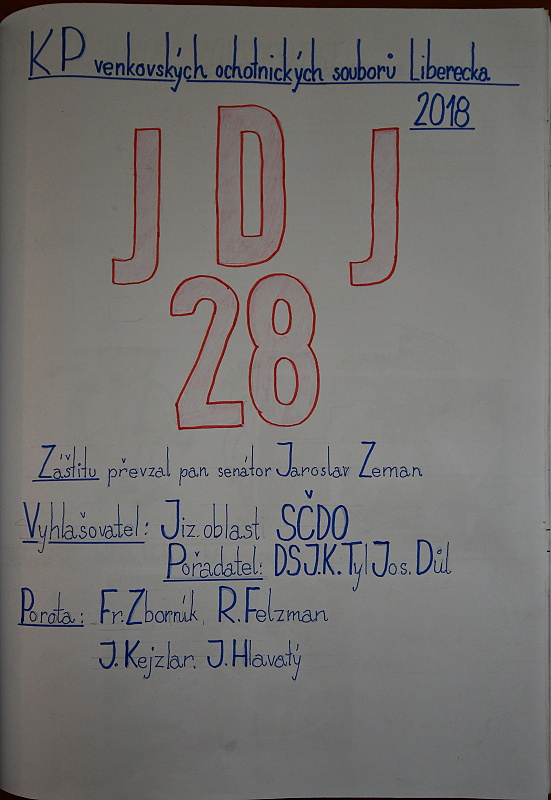 KP venkovských ochotnických souborů Liberecka
2018
J D J
28
Záštitu převzal pan senátor Jaroslav Zeman
Vyhlašovatel: Jiz. oblast SČDO
Pořadatel: DS J.K.Tyl Jos. Důl
Porota: Fr. Zborník, R. Felzman
J. Kejzlar, J. Hlavatý